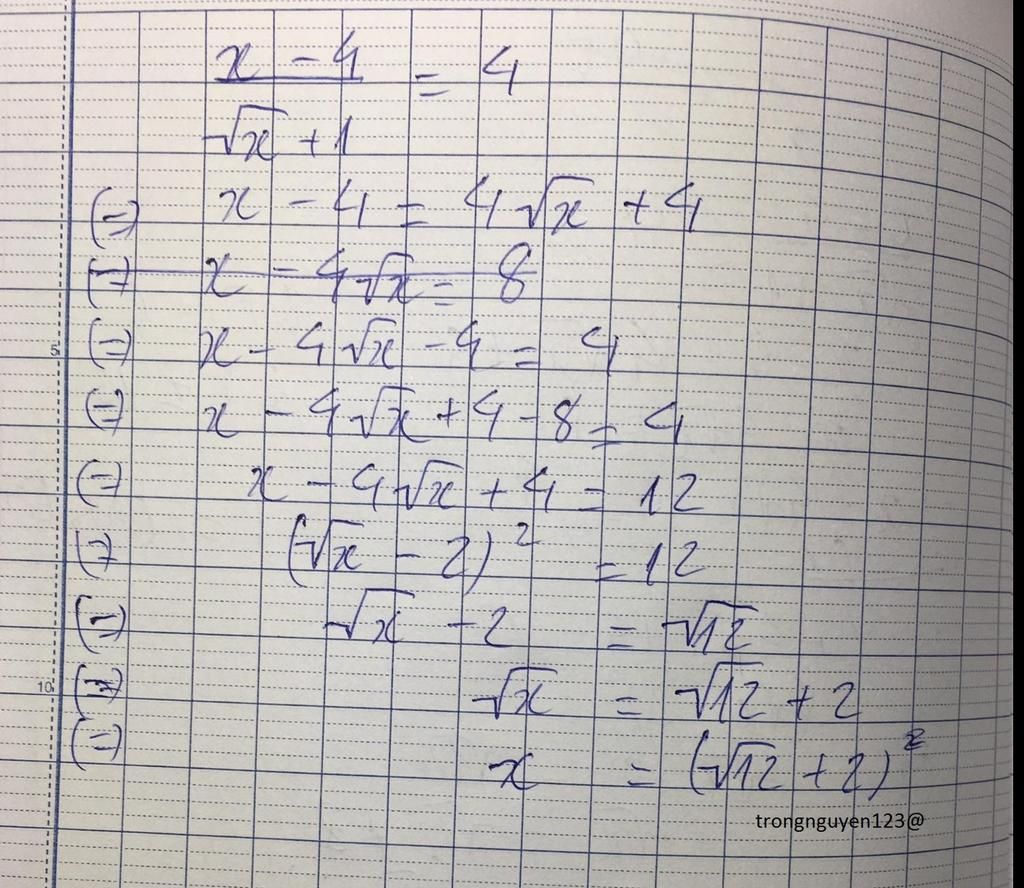 x - 4 = 4
√x + 1
(=) x - 4 = 4√x + 4
(=) x - 4√x = 8
5 (=) x - 4√x - 4 = 4
(=) x - 4√x + 4 - 8 = 4
(=) x - 4√x + 4 = 12
(=) (√x - 2)² = 12
(=) √x - 2 = √12
10 (=) √x = √12 + 2
(=) x = (√12 + 2)²
trongnguyen123@